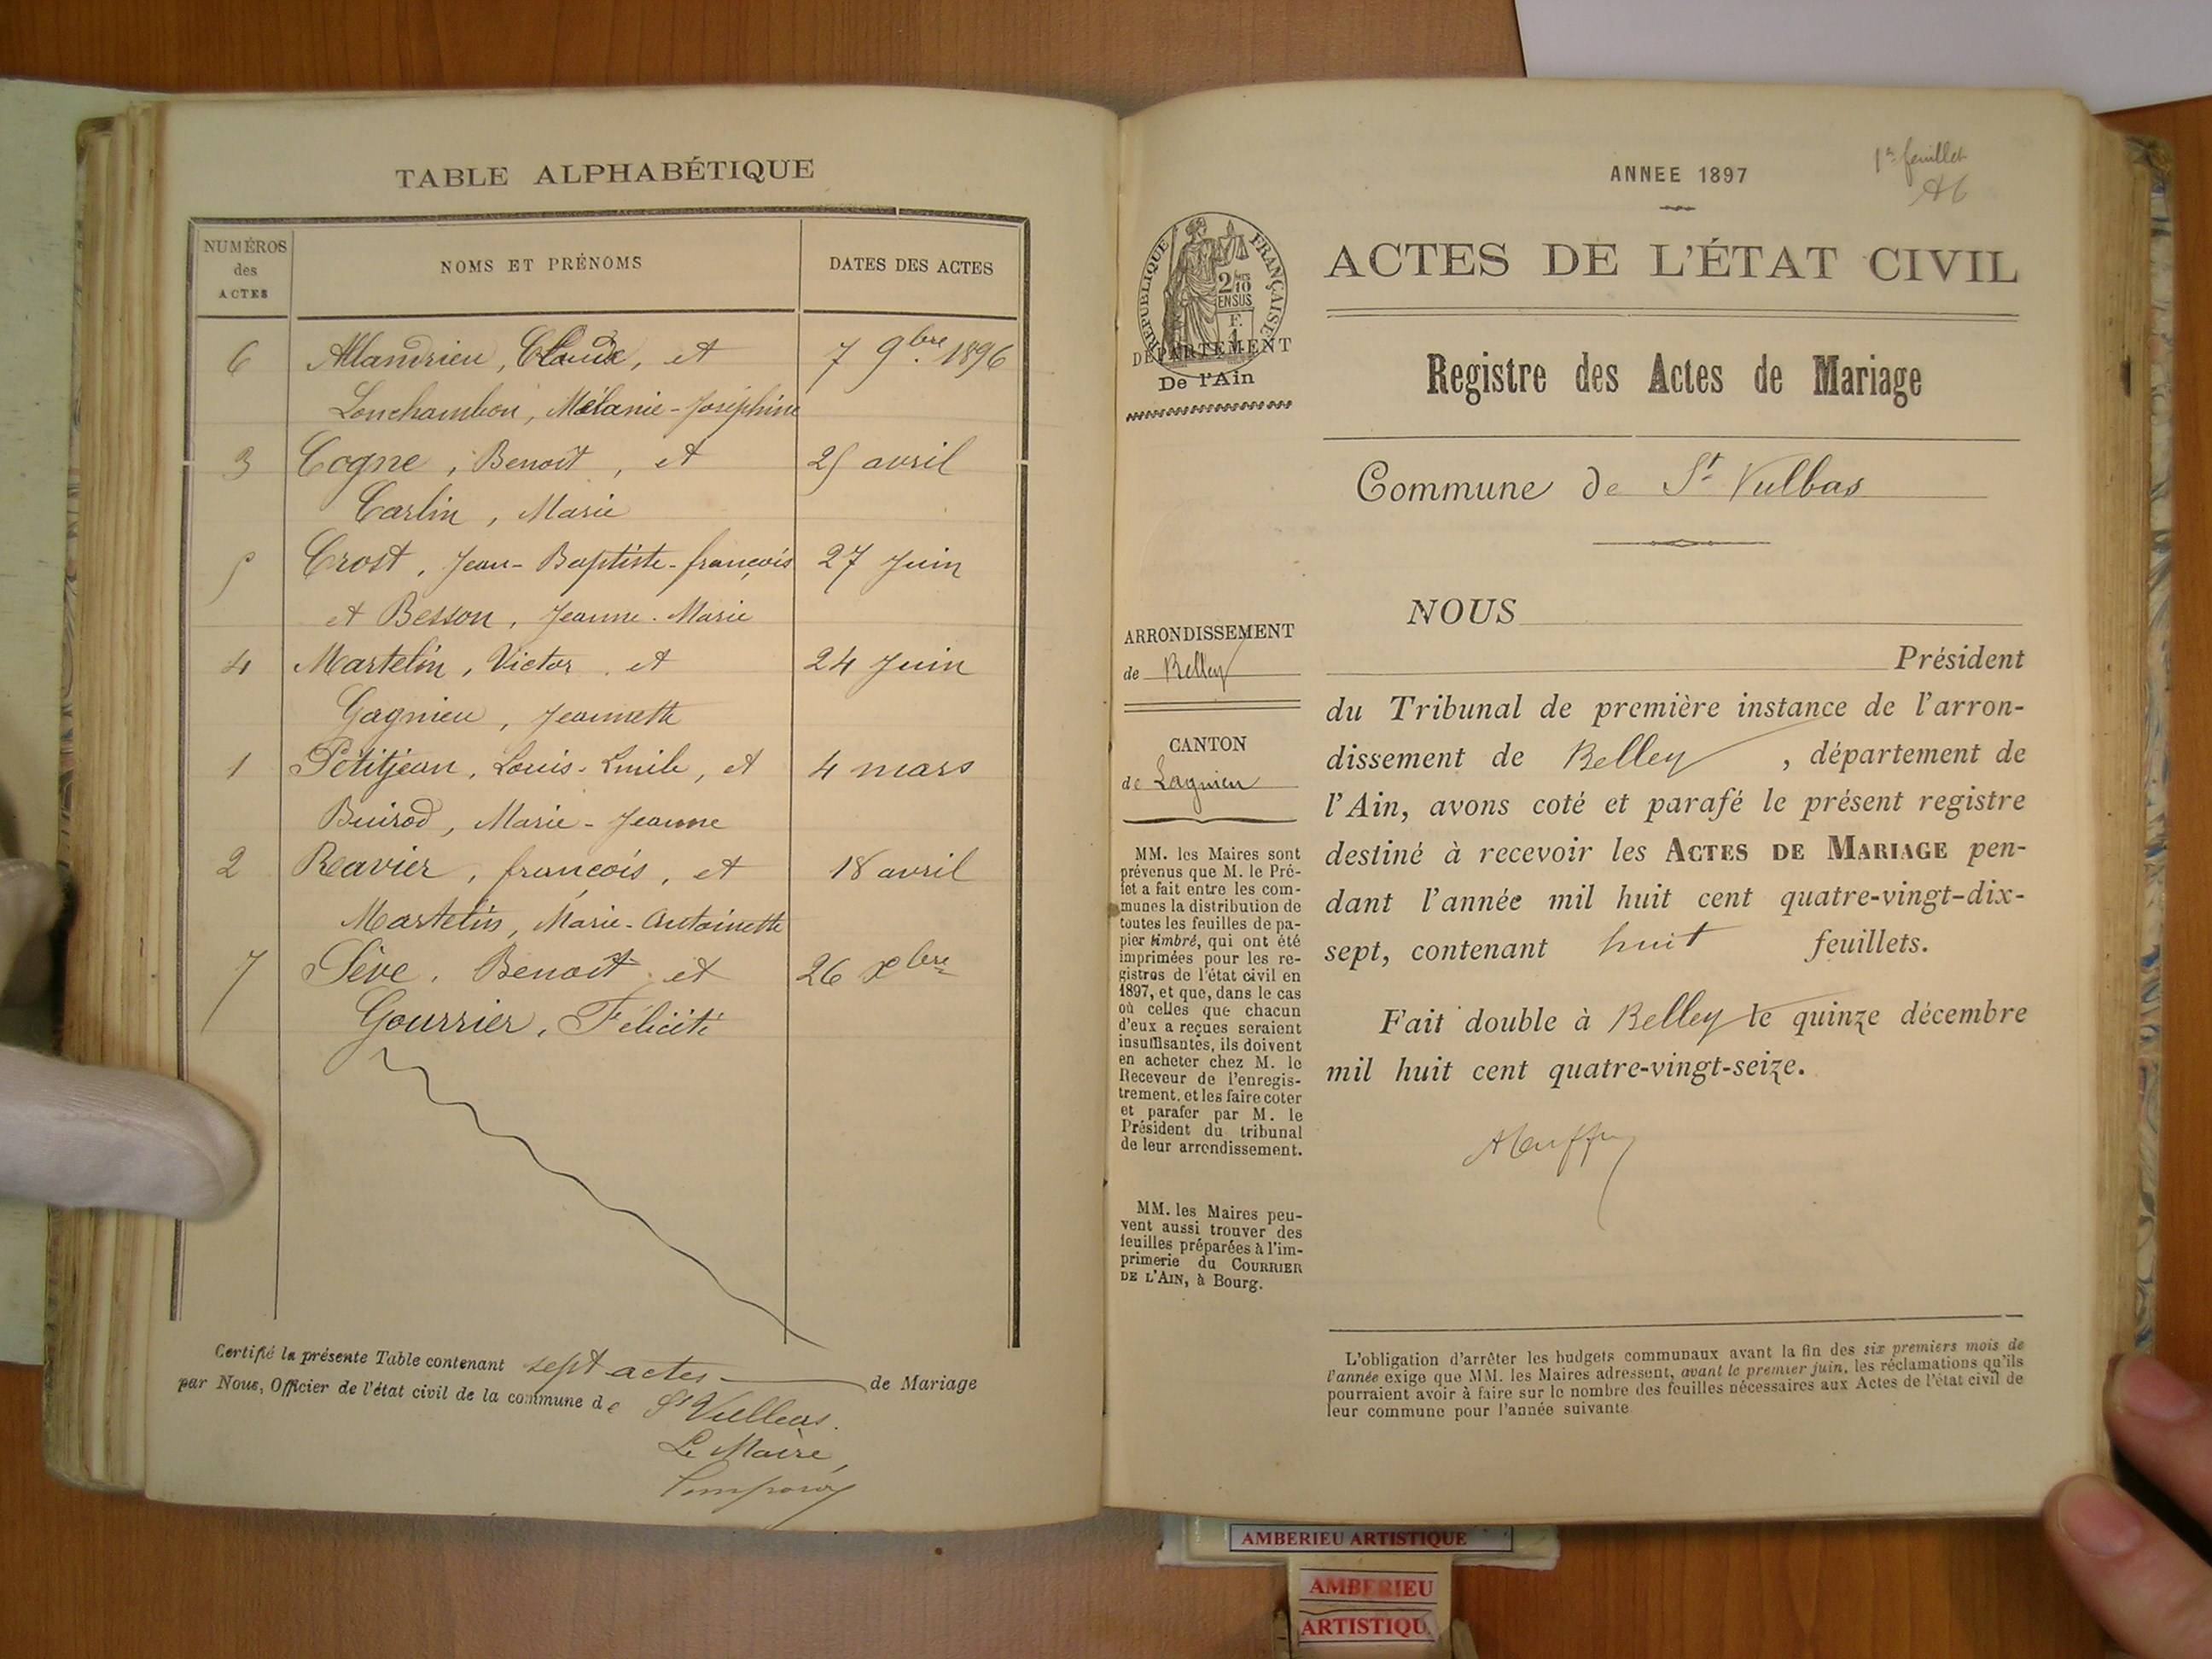 TABLE ALPHABÉTIQUE
NUMÉROS
des
ACTES
NOMS ET PRÉNOMS
DATES DES ACTES
6 Allandrieu, Claude, et 7 9bre 1896
Lonchambon, Mélanie-Joséphine
3 Cogne, Benoît, et 25 avril
Carlin, Marie
5 Crost, Jean-Baptiste-françois 27 Juin
et Besson, Jeanne-Marie
4 Martelin, Victor et 24 Juin
Gagnieu, Jeannette
1 Petitjean, Louis-Emile, et 4 mars
Buirod, Marie-Jeanne
2 Ravier, françois, et 18 avril
Martelin, Marie-Antoinette
7 Sève, Benoit et 26 Xbre
Gourrier, Félicité
Certifié la présente Table contenant sept actes de Mariage
par Nous, Officier de l'état civil de la commune de St Vulbas.
Le Maire,
1er feuillet
ANNEE 1897
ACTES DE L'ÉTAT CIVIL
REPUBLIQUE FRANÇAISE
2/10
EN SUS
DÉPARTEMENT
De l'Ain
Registre des Actes de Mariage
Commune de St Vulbas
ARRONDISSEMENT
de Belley
CANTON
de Lagnieu
MM. les Maires sont
prévenus que M. le Pré-
fet a fait entre les com-
munes la distribution de
toutes les feuilles de pa-
pier timbré, qui ont été
imprimées pour les re-
gistres de l'état civil en
1897, et que, dans le cas
où celles que chacun
d'eux a reçues seraient
insuffisantes, ils doivent
en acheter chez M. le
Receveur de l'enregis-
trement, et les faire coter
et parafer par M. le
Président du tribunal
de leur arrondissement.
MM. les Maires peu-
vent aussi trouver des
feuilles préparées à l'im-
primerie du COURRIER
DE L'AIN, à Bourg.
NOUS
Président
du Tribunal de première instance de l'arron-
dissement de Belley, département de
l'Ain, avons coté et parafé le présent registre
destiné à recevoir les ACTES DE MARIAGE pen-
dant l'année mil huit cent quatre-vingt-dix-
sept, contenant huit feuillets.
Fait double à Belley le quinze décembre
mil huit cent quatre-vingt-seize.
L'obligation d'arrêter les budgets communaux avant la fin des six premiers mois de
l'année exige que MM. les Maires adressent, avant le premier juin, les réclamations qu'ils
pourraient avoir à faire sur le nombre des feuilles nécessaires aux Actes de l'état civil de
leur commune pour l'année suivante
AMBERIEU ARTISTIQUE
AMBERIEU
ARTISTIQU